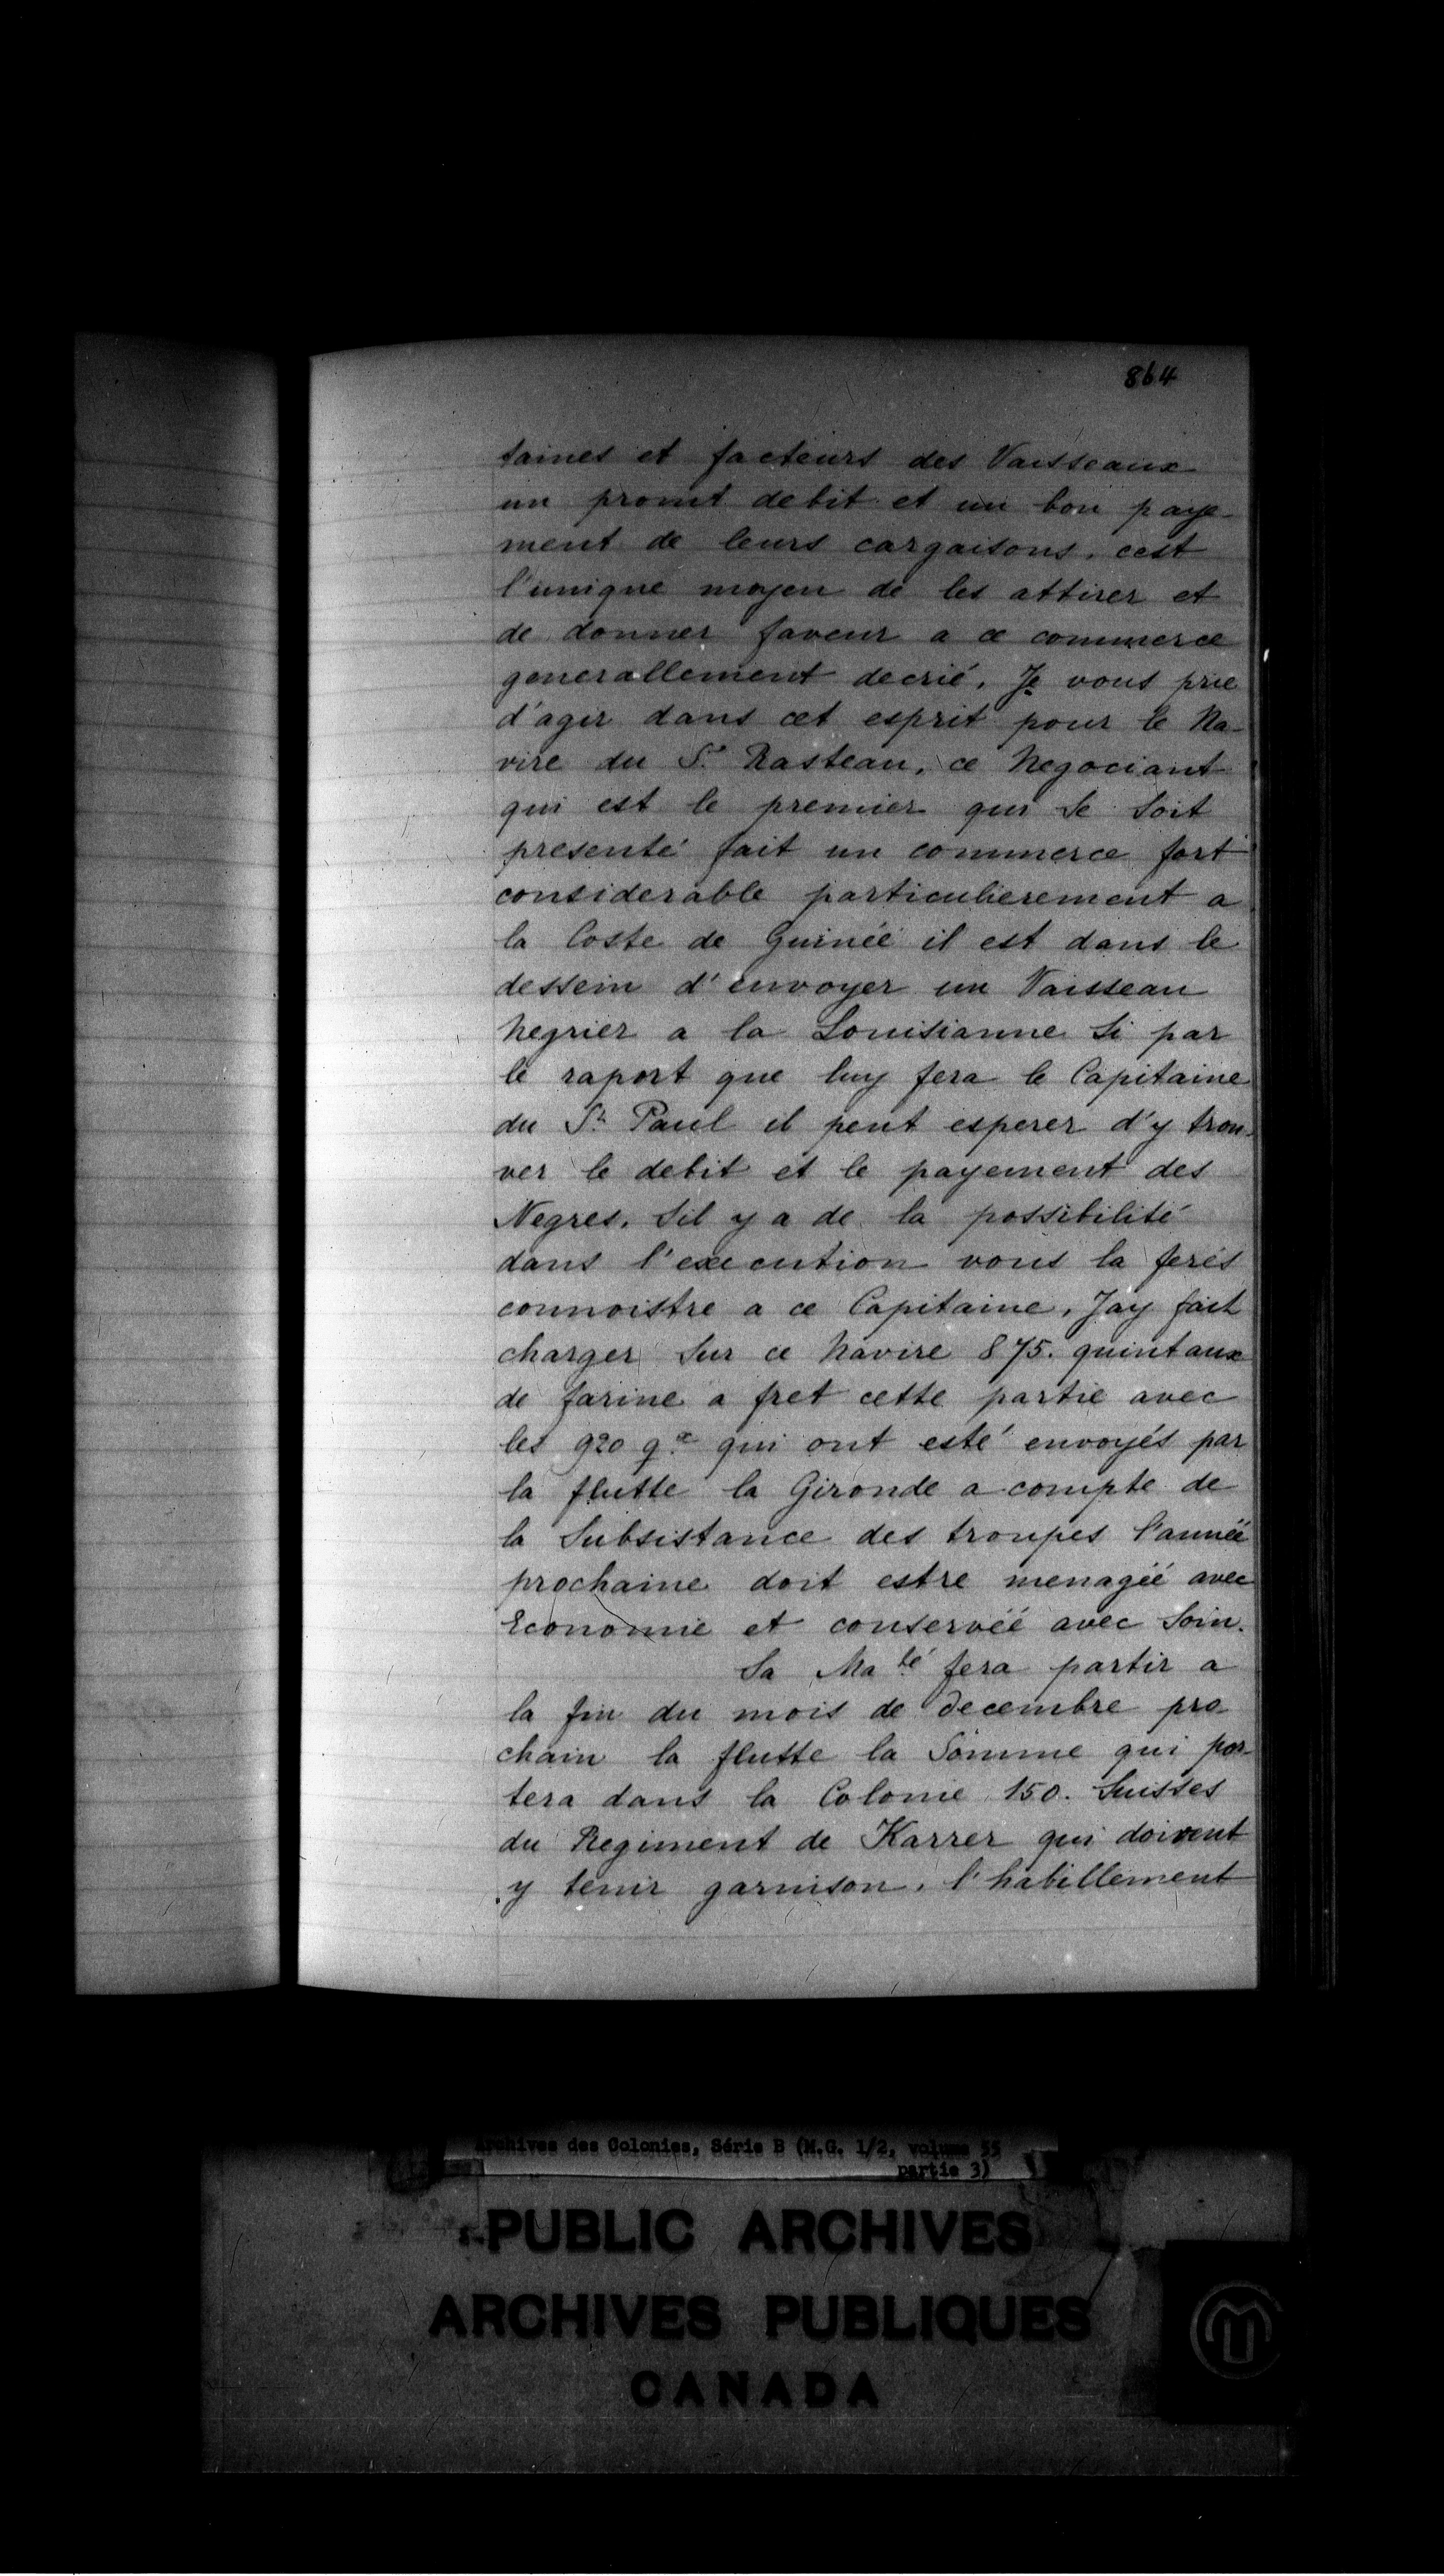 864
taines et facteurs des Vaisseaux
un promt debit et un bon paye-
ment de leurs cargaisons. cest
l'unique moyen de les attirer et
de donner faveur a ce commerce
generallement decrié. Je vous prie
d'agir dans cet esprit pour le Na-
vire du S. Rasteau, ce Negociant
qui est le premier qui Se Soit
presenté fait un commerce fort
considerable particulierement a
la Coste de Guinéé il est dans le
dessein d'envoyer un Vaisseau
Negrier a la Louisianne Si par
le raport que luy fera le Capitaine
du St. Paul il peut esperer d'y trou-
ver le debit et le payement des
Negres. Sil y a de la possibilité
dans l'execution vous la ferés
connoistre a ce Capitaine, Jay fait
charger Sur ce Navire 875. quintaux
de farine a fret cette partie avec
les 920 qx qui ont esté envoyés par
la flutte la Gironde a compte de
la Subsistance des troupes l'annéé
prochaine doit estre menagéé avec
Economie et conservéé avec Soin.
Sa Maté fera partir a
la fin du mois de decembre pro-
chain la flutte la Somme qui por-
tera dans la Colonie 150. Suisses
du Regiment de Karrer qui doivent
y tenir garnison, l'habillement
Archives des Colonies, Série B (M.G. 1/2, volume 55
partie 3)
PUBLIC ARCHIVES
ARCHIVES PUBLIQUES
CANADA